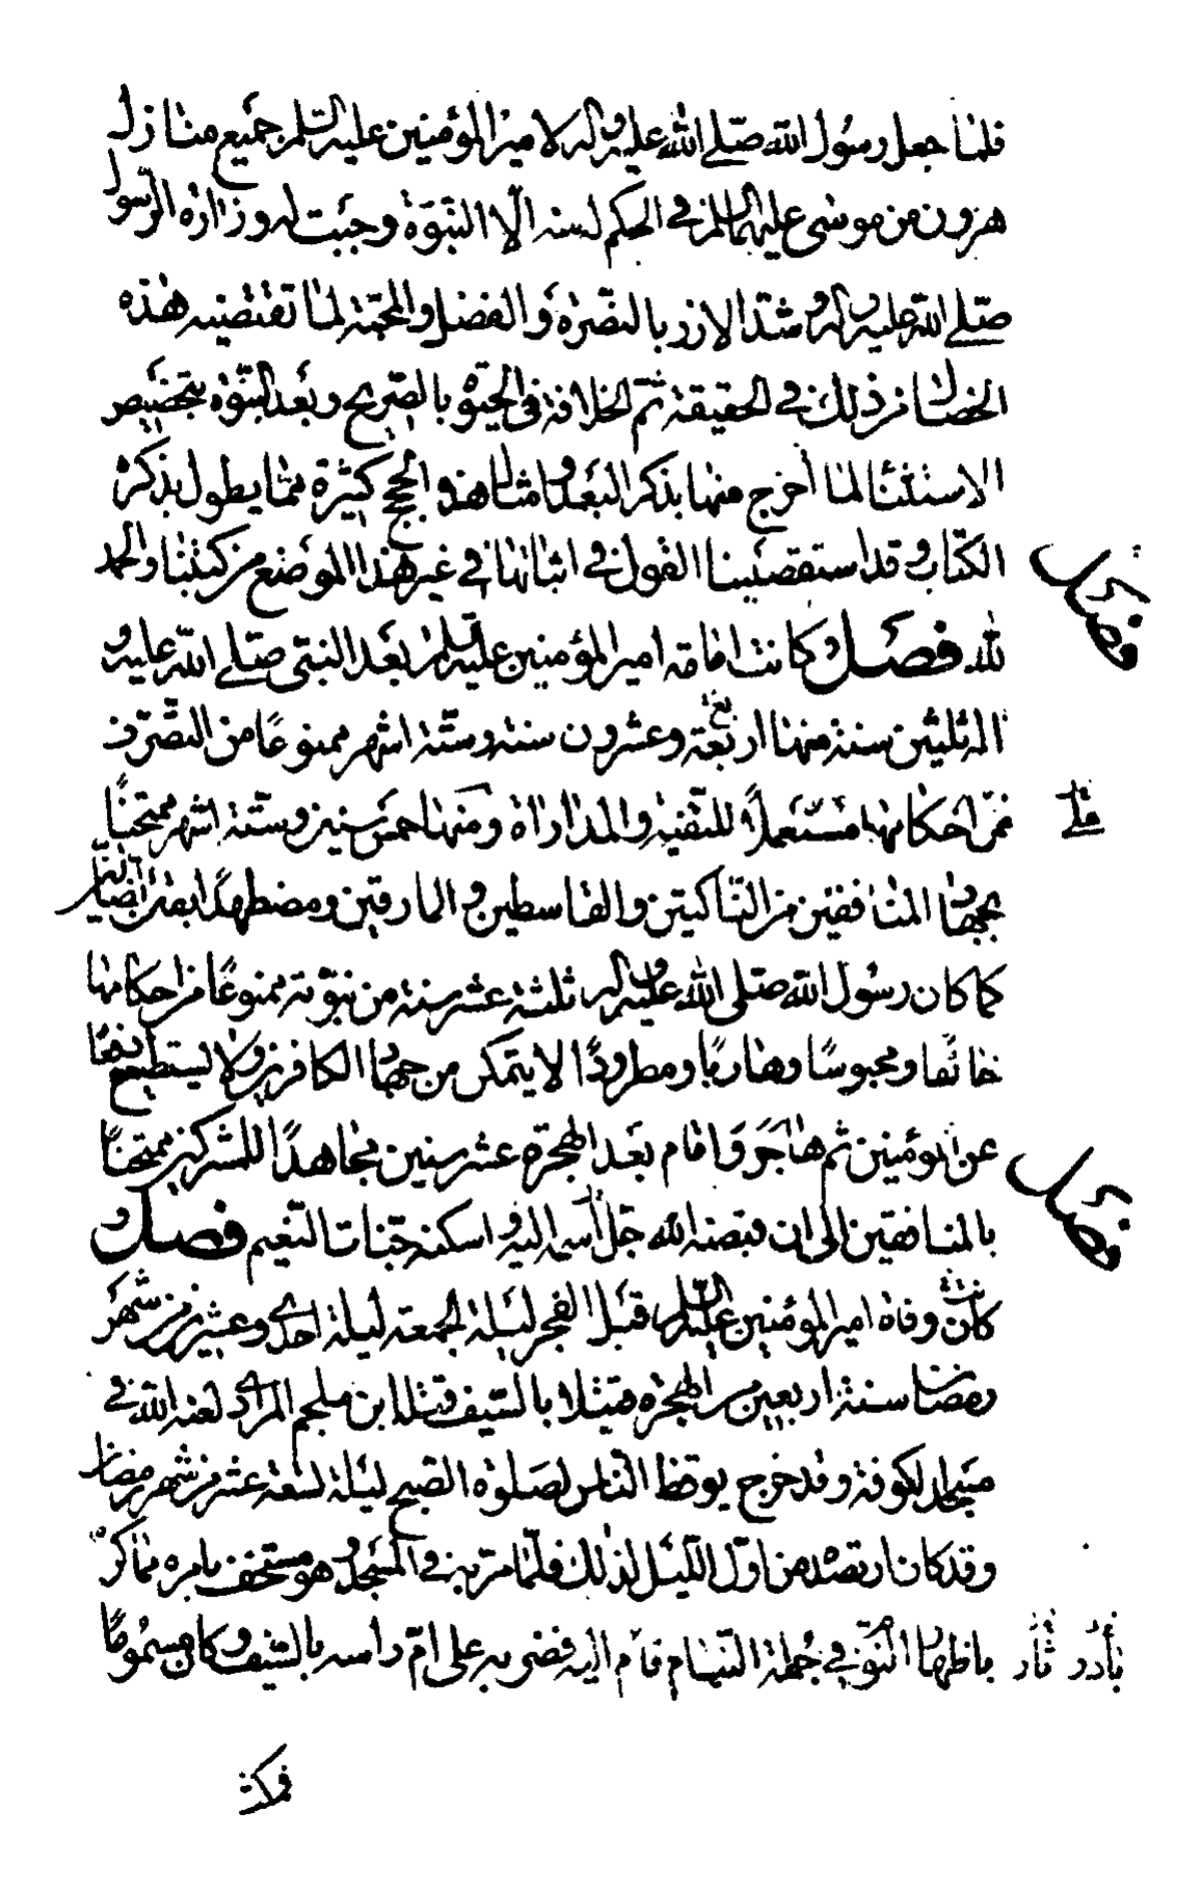 فلما جعل رسول الله صلى الله عليه وآله لامير المؤمنين عليه السلم جميع منازل
هرون من موسى عليهما السلم في الحكم له منه الا النبوة وجبت له وزارة الرسول
صلى الله عليه وآله وشد الازر بالنصرة والفضل والمحبة لما تقتضيه هذه
الخصال من ذلك في الحقيقة ثم الخلافة في الحيوة بالصريح وبعد النبوة بتخصيص
الاستثنا لما اخرج منها بذكر البعد وامثال هذه الحجج كثيرة مما يطول بذكره
الكتاب وقد استقصينا القول في اثباتها في غير هذا الموضع من كتبنا والحمد
فصل
لله فصل وكانت امامة امير المؤمنين عليه السلم بعد النبي صلى الله عليه و
اله ثلثين سنة منها اربعة وعشرون سنة وستة اشهر ممنوعا من التصرف
في احكامها مستعملا للتقية والمداراة ومنها خمس سنين وستة اشهر ممتحنا
بجهاد المنافقين من الناكثين والقاسطين والمارقين ومضطهدا بفتن الضالين
كما كان رسول الله صلى الله عليه وآله ثلثة عشر سنة من نبوته ممنوعا من احكامها
خائفا ومحبوسا وهاربا ومطرودا لا يتمكن من جهاد الكافرين ولا يستطيع دفعا
عن المؤمنين ثم هاجر واقام بعد الهجرة عشر سنين مجاهدا للمشركين ممتحنا
فصل
بالمنافقين الى ان قبضه الله جل اسمه اليه واسكنه جنات النعيم فصل و
كانت وفاة امير المؤمنين عليه السلم قبل الفجر ليلة الجمعة ليلة احدى وعشرين من شهر
رمضان سنة اربعين من الهجرة قتيلا بالسيف قتله ابن ملجم المرادي لعنه الله في
مسجد الكوفة وقد خرج يوقظ الناس لصلوة الصبح ليلة تسعة عشر من شهر رمضان
وقد كان ارتصده من اول الليل لذلك فلما مر به في المسجد وهو مستخف بامره مماكر
باظهار النوم في جملة النيام قام اليه فضربه على ام راسه بالسيف وكان مسموما
فمكث